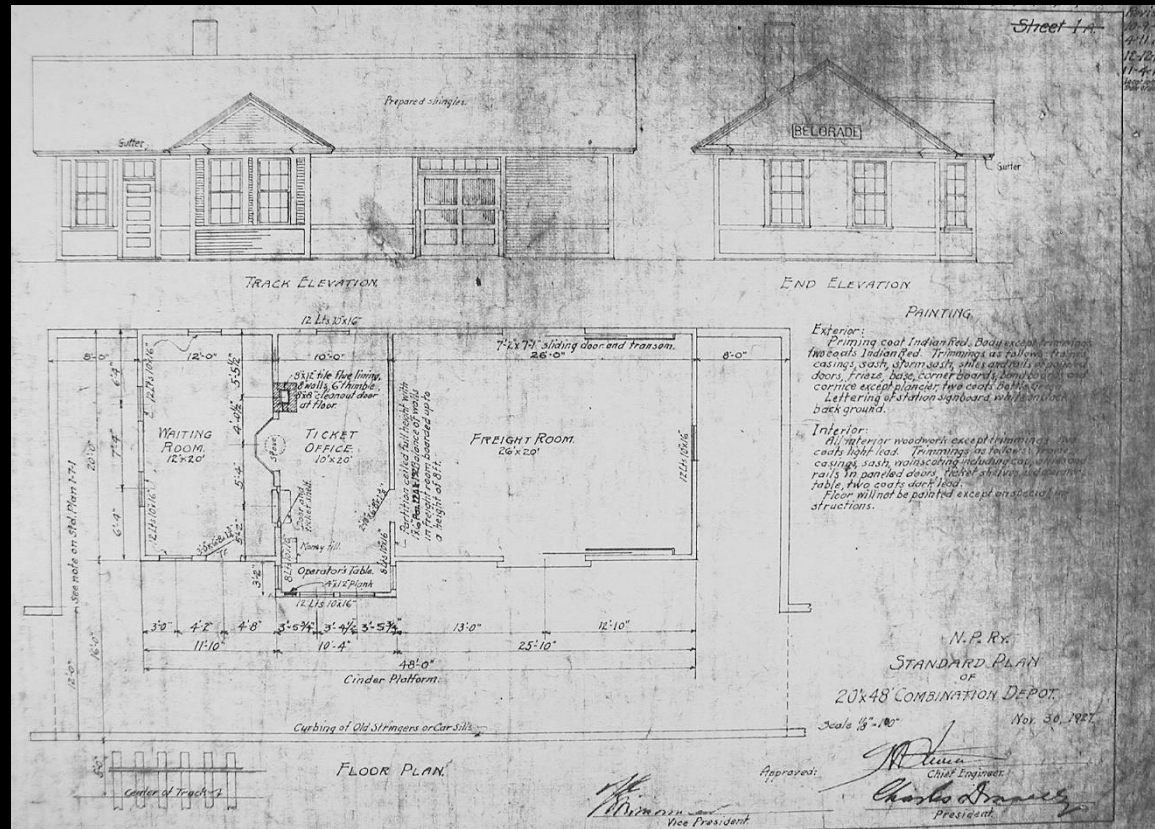 Sheet 1A
Prepared shingles.
Gutter
BELGRADE
Gutter
TRACK ELEVATION
END ELEVATION
PAINTING
Exterior:
Priming coat Indian Red. Body except trimmings
two coats Indian Red. Trimmings as follows, frames,
casings, sash, storm sash, stiles and rails of
doors, frieze, base, corner boards,
cornice except plancier, two coats Bottle Green.
Lettering of station signboard white on black
back ground.
Interior:
All interior woodwork except trimmings two
coats light lead. Trimmings as follows: frames
casings, sash, wainscoting including cap, stiles and
rails in paneled doors, ticket shelves,
table, two coats dark lead.
Floor will not be painted except on special in
structions.
12 Lts 10x16"
7-2x7-1 sliding door and transom.
8'-0"
12'-0"
10'-0"
26'-0"
8'-0"
8x12 tile flue lining,
8"walls, 6"thimble,
8x8 cleanout door
at floor.
WAITING
ROOM.
12'x20'
TICKET
OFFICE.
10'x20'
FREIGHT ROOM.
26'x20'
Stove
Partition ceiled full height with
Balance of walls
in freight room boarded up to
a height of 8 ft.
12 Lts 10x16"
12 Lts 10x16"
12 Lts 10x16"
8 Lts 10x16"
8 Lts 10x16"
5'-5½"
4'-0½"
5'-4"
5'-2"
6'-4"
7'-4"
6'-4"
20'-0"
See note on Std. Plan 1-7-1
Door and
ticket shelf.
Money till.
Operator's Table.
4"x12" Plank
12 Lts 10x16"
3'-2"
3'-0"
4'-2"
4'-8"
3'-5¾"
3'-4½"
3'-5¾"
13'-0"
12'-10"
11'-10"
10'-4"
25'-10"
48'-0"
Cinder Platform.
16'-0"
12'-0"
Curbing of Old Stringers or Car Sills
Center of Track
FLOOR PLAN.
N.P. RY.
STANDARD PLAN
OF
20'x48' COMBINATION DEPOT.
Scale ⅛"=1'-0"
Nov. 30, 1927.
Approved:
Chief Engineer.
Charles Donnelly
President.
Vice President.